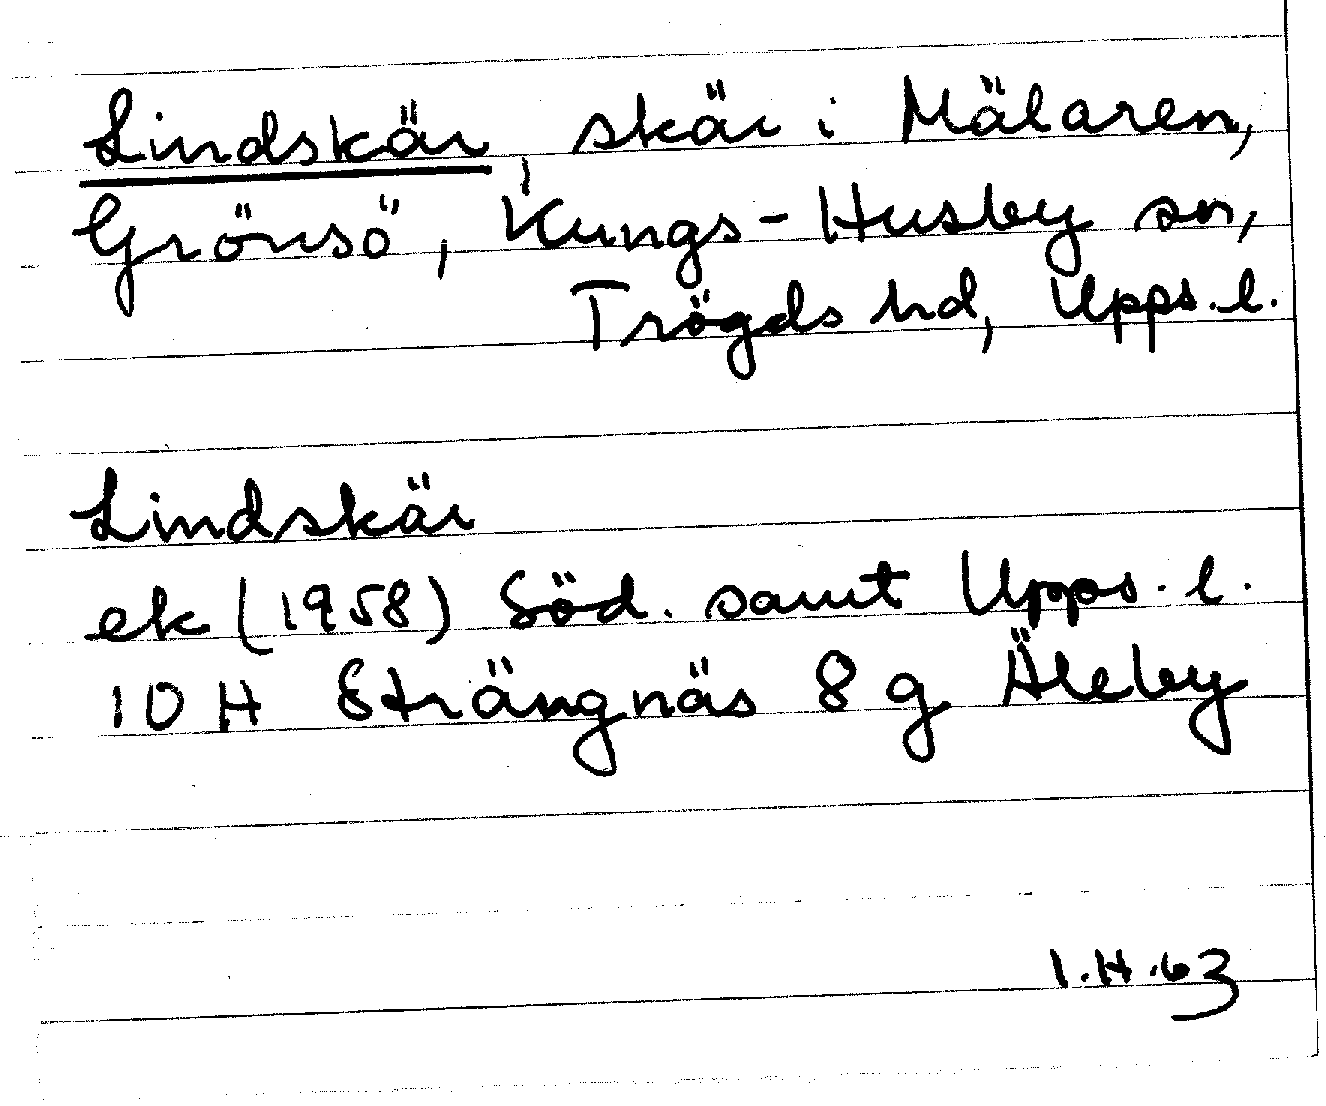 Lindskär, skär i Mälaren,
Grönsö, Kungs-Husby sn,
Trögds hd, Upps. l.
Lindskär
ek (1958) Söd. samt Upps. l.
10 H Strängnäs 8 g Äleby
I.H.63